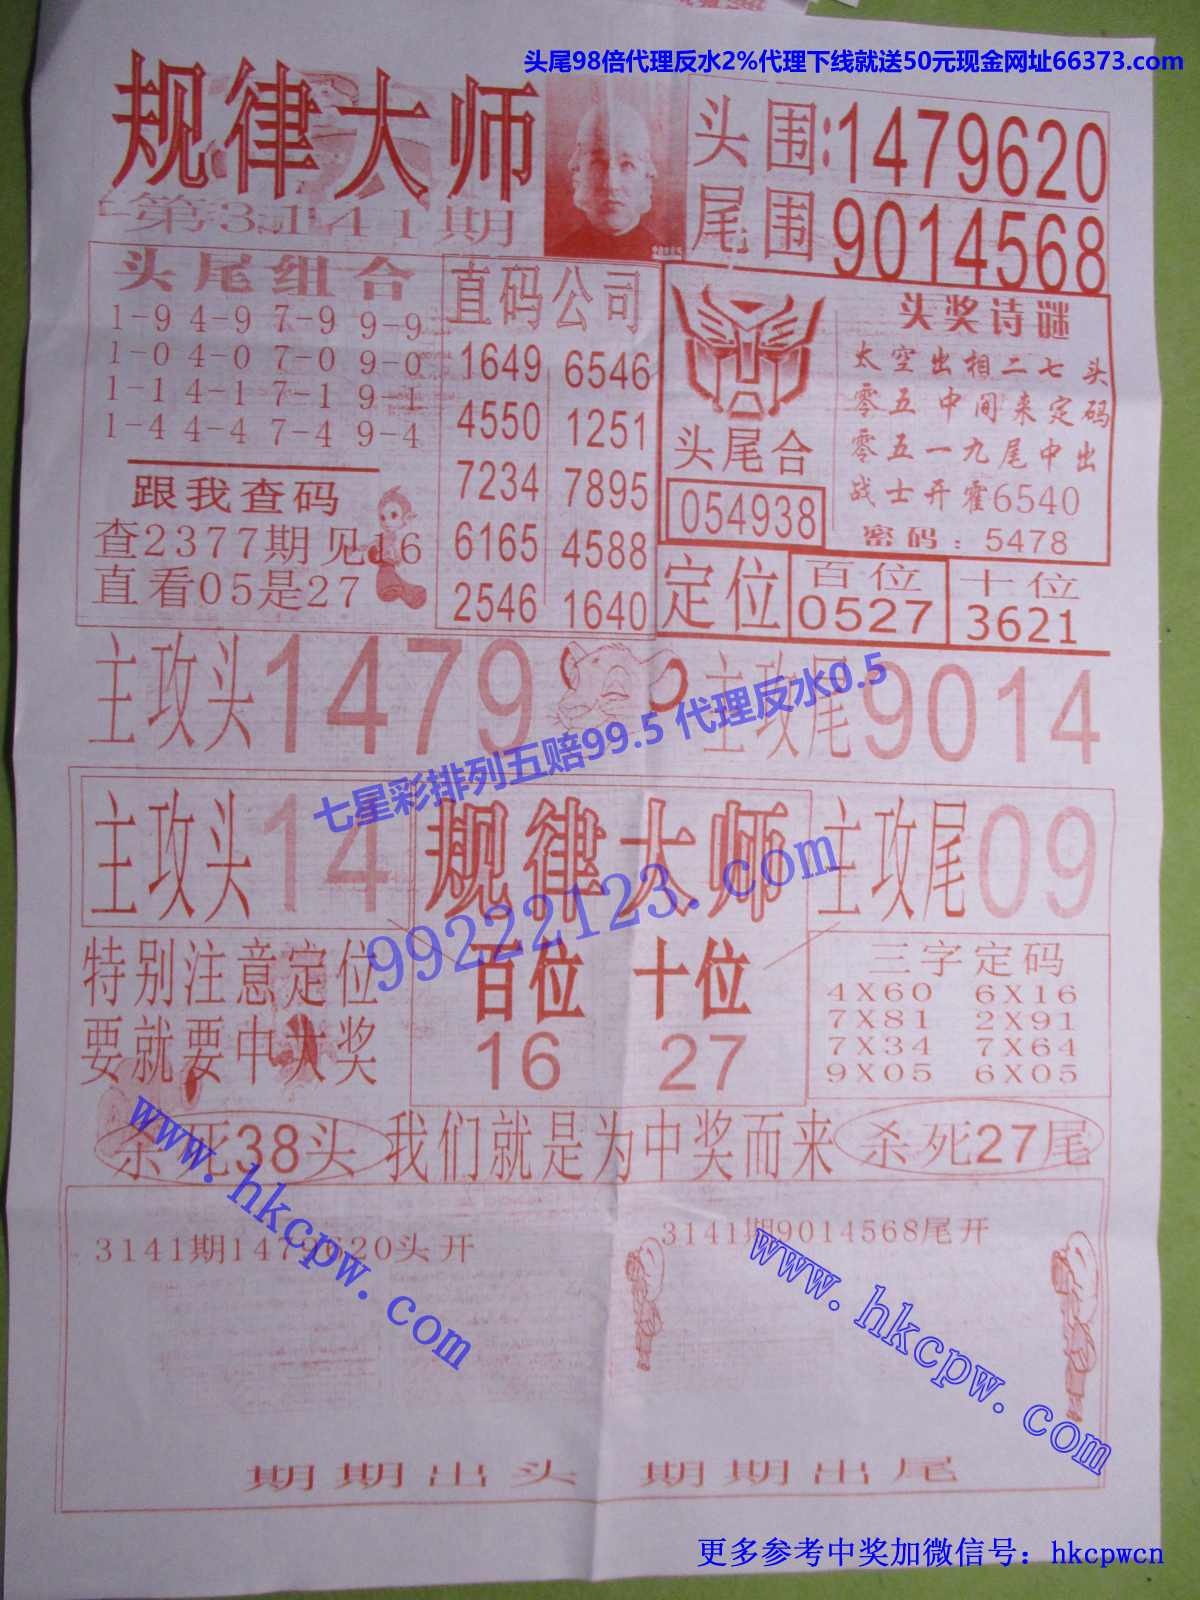 头尾98倍代理反水2%代理下线就送50元现金网址66373.com
规律大师
第3141期
头围:1479620
尾围 9014568
头尾组合
1-9 4-9 7-9 9-9
1-0 4-0 7-0 9-0
1-1 4-1 7-1 9-1
1-4 4-4 7-4 9-4
跟我查码
查2377期见16
直看05是27
直码公司
1649 6546
4550 1251
7234 7895
6165 4588
2546 1640
头尾合
054938
头奖诗谜
太空出相二七头
零五中间来定码
零五一九尾中出
战士开霍6540
密码:5478
定位
百位
0527
十位
3621
主攻头1479
主攻尾9014
七星彩排列五赔99.5 代理反水0.5
主攻头14
规律大师
主攻尾09
99222123.com
特别注意定位
要就要中大奖
百位 十位
16 27
三字定码
4X60 6X16
7X81 2X91
7X34 7X64
9X05 6X05
杀死38头
我们就是为中奖而来
杀死27尾
www.hkcpw.com
3141期1479620头开
3141期9014568尾开
www.hkcpw.com
期期出头 期期出尾
更多参考中奖加微信号：hkcpwcn